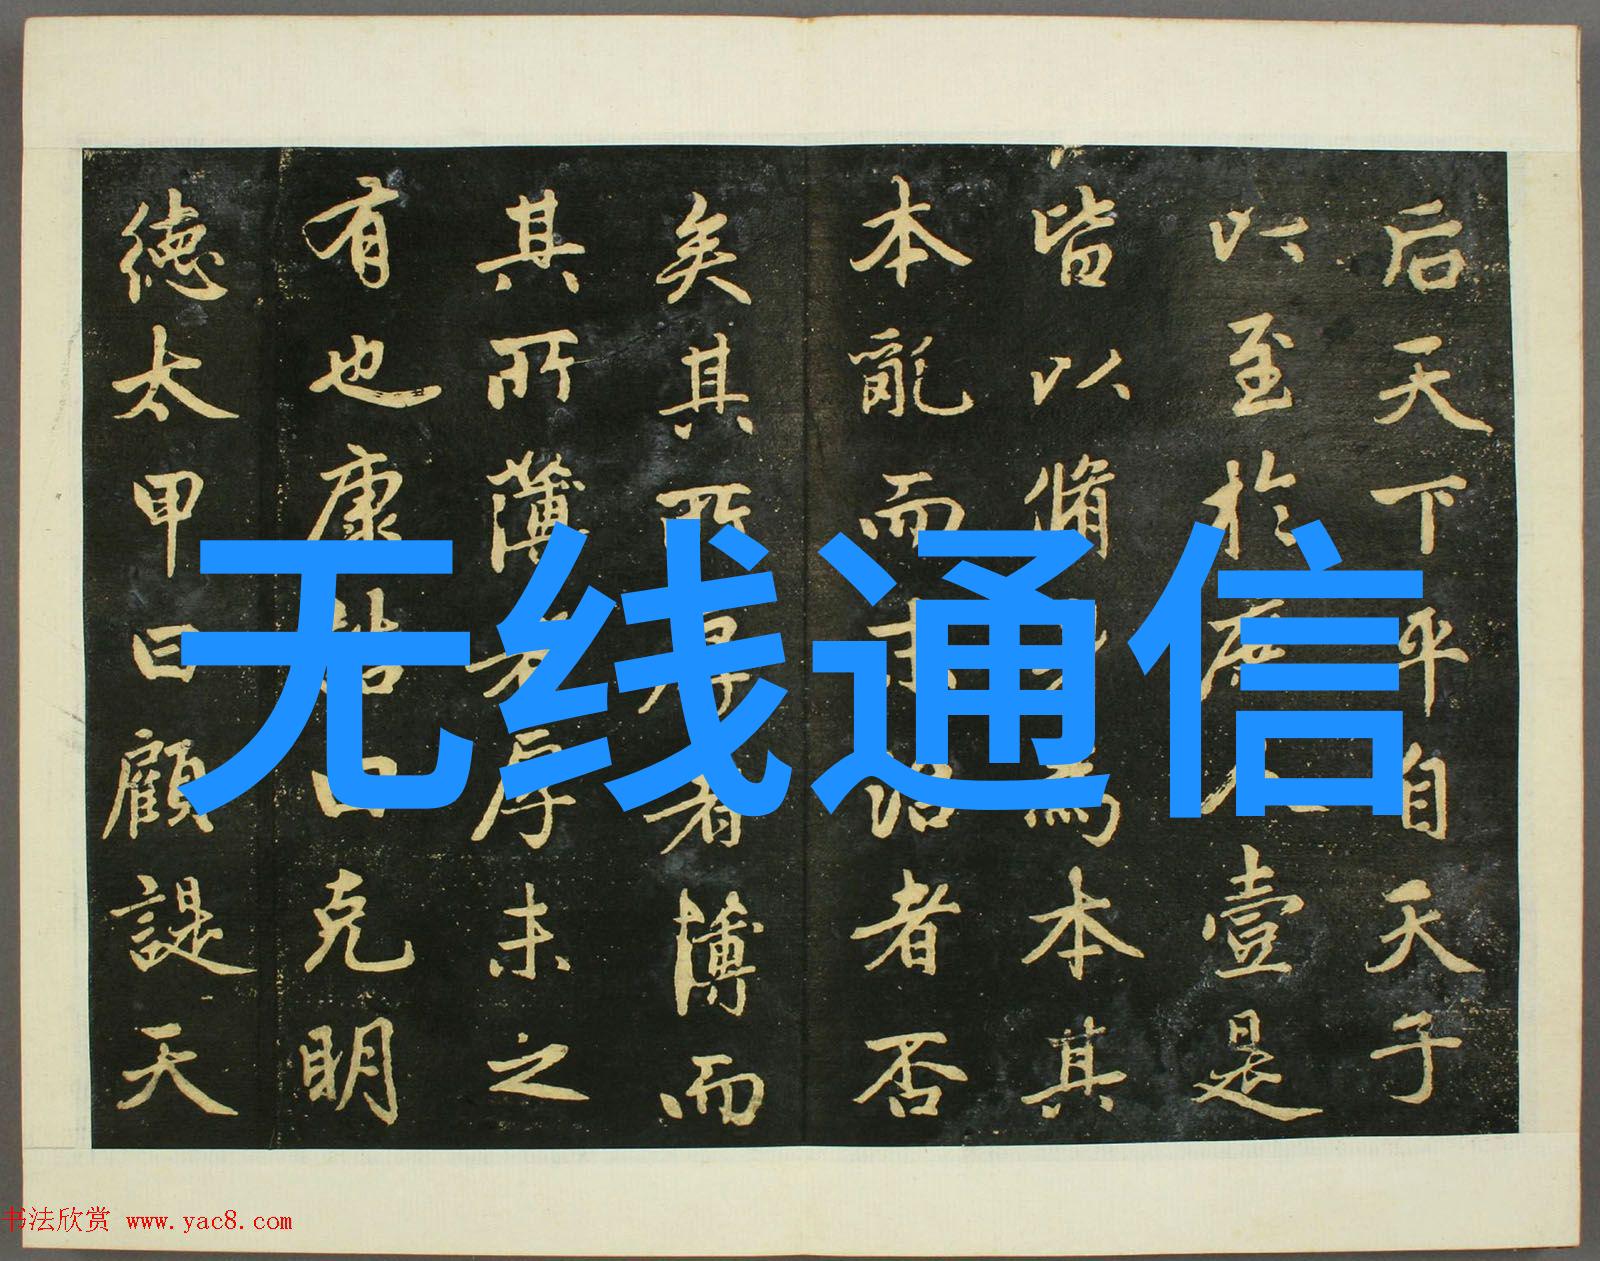 后天下平自天子
以至於庶人壹是
皆以脩身為本其
本亂而末治者否
矣其所厚者薄而
其所薄者厚未之
有也康誥曰克明
德太甲曰顧諟天
无线通信
书法欣赏 www.yac8.com